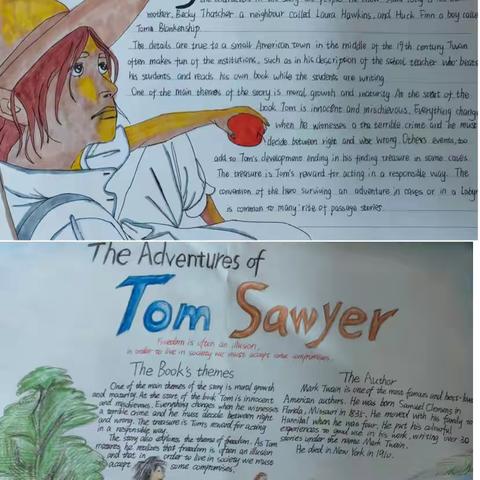 mother, Becky Thatcher a neighbour called Laura Hawkins, and Huck Finn a boy called
Toma Blankenship.
The details are true to a small American town in the middle of the 19th century. Twain
often makes fun of the institutions, such as in his description of the school teacher who beats
his students and reads his own book while the students are writing.
One of the main themes of the story is moral growth and maturity. At the start of the
book Tom is innocent and mischievous. Everything change
when he witnesses a the terrible crime and he must
decide between right and wrong. Others events, too
add to Tom's development ending in his finding treasure in some caves.
The treasure is Tom's reward for acting in a responsible way. The
convention of the hero surviving an adventure in caves or in a Labyr
is common to many 'rite of passage stories.
The Adventures of
Tom Sawyer
Freedom is often an illusion,
in order to live in society we must accept some compromises.
The Book's themes
One of the main themes of the story is moral growth
and maturity. At the start of the book Tom is innocent
and mischievous. Everything changes when he witnesses
a terrible crime and he must decide between right
and wrong. The treasure is Tom's reward for acting
in a responsible way.
The story also explores the theme of freedom. As Tom
matures he realizes that freedom is often an illusion
and that in order to live in society we must
accept some compromises.
The Author
Mark Twain is one of the most famous and best-love
American authors. He was born Samuel Clemens in
Florida, Missouri in 1835. He moved with his family to
Hannibal when he was four. He put his colourful
experiences to good use in his work, writing over 30
stories under the name Mark Twain.
He died in New York in 1910.